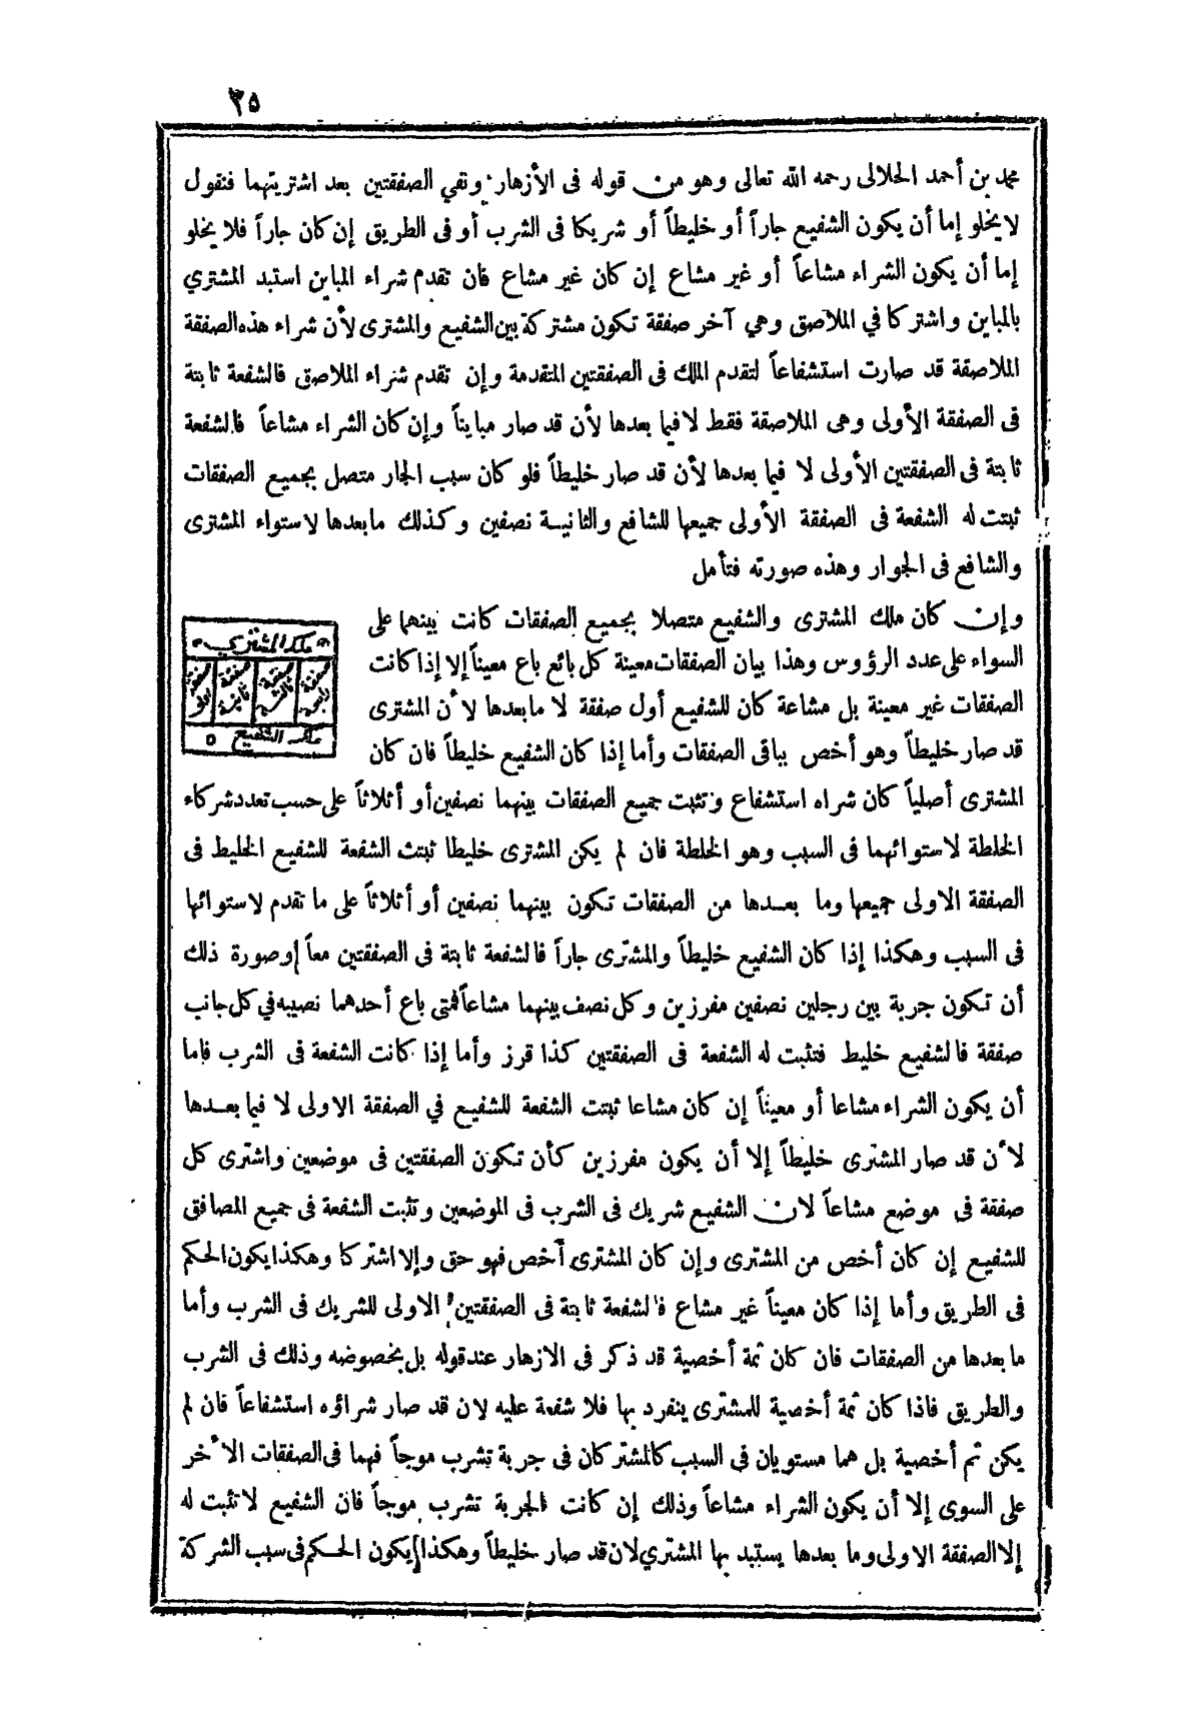 ٣٥
محمد بن أحمد الحلالى رحمه الله تعالى وهو من قوله فى الأزهار وتفي الصفقتين بعد اشتريتهما فنقول
لا يخلو إما أن يكون الشفيع جاراً أو خليطاً أو شريكا فى الشرب أو فى الطريق إن كان جاراً فلا يخلو
إما أن يكون الشراء مشاعاً أو غير مشاع إن كان غير مشاع فان تقدم شراء المباين استبد المشتري
بالمباين واشتركا في الملاصق وهي آخر صفقة تكون مشتركة بين الشفيع والمشترى لأن شراء هذه الصفقة
الملاصقة قد صارت استشفاعاً لتقدم الملك فى الصفقتين المتقدمة وإن تقدم شراء الملاصق فالشفعة ثابتة
فى الصفقة الأولى وهى الملاصقة فقط لا فيما بعدها لأن قد صار مبايناً وإن كان الشراء مشاعاً فالشفعة
ثابتة فى الصفقتين الأولى لا فيما بعدها لأن قد صار خليطاً فلو كان سبب الجار متصل بجميع الصفقات
ثبتت له الشفعة فى الصفقة الأولى جميعها للشافع والثانيـة نصفين وكذلك مابعدها لاستواء المشترى
والشافع فى الجوار وهذه صورته فتأمل
وإن كان ملك المشترى والشفيع متصلا بجميع الصفقات كانت بينهما على
السواء على عدد الرؤوس وهذا بيان الصفقات معينة كل بائع باع معيناً إلا إذا كانت
الصفقات غير معينة بل مشاعة كان للشفيع أول صفقة لا مابعدها لأن المشترى
قد صار خليطاً وهو أخص بباقى الصفقات وأما إذا كان الشفيع خليطاً فان كان
ملك المشتري
صفقة رابعة
صفقة ثالثة
صفقة ثانية
صفقة اولى
ملك الشفيع ٥
المشترى أصلياً كان شراه استشفاع وتثبت جميع الصفقات بينهما نصفين أو أثلاثاً على حسب تعدد شركاء
الخلطة لاستوائهما فى السبب وهو الخلطة فان لم يكن المشترى خليطا ثبتت الشفعة للشفيع الخليط فى
الصفقة الاولى جميعها وما بعـدها من الصفقات تكون بينهما نصفين أو أثلاثاً على ما تقدم لاستوائها
فى السبب وهكذا إذا كان الشفيع خليطاً والمشترى جاراً فالشفعة ثابتة فى الصفقتين معاً وصورة ذلك
أن تكون جربة بين رجلين نصفين مفرزين وكل نصف بينهما مشاعاً فمتى باع أحدهما نصيبه في كل جانب
صفقة فالشفيع خليط فتثبت له الشفعة فى الصفقتين كذا قرز وأما إذا كانت الشفعة فى الشرب فاما
أن يكون الشراء مشاعا أو معيناً إن كان مشاعا ثبتت الشفعة للشفيع في الصفقة الاولى لا فيما بعـدها
لأن قد صار المشترى خليطاً إلا أن يكون مفرزين كأن تكون الصفقتين فى موضعين واشترى كل
صفقة فى موضع مشاعاً لان الشفيع شريك فى الشرب فى الموضعين وتثبت الشفعة فى جميع الصافق
للشفيع إن كان أخص من المشترى وإن كان المشترى أخص فهو حق وإلا اشتركا وهكذا يكون الحكم
فى الطريق وأما إذا كان معيناً غير مشاع فالشفعة ثابتة فى الصفقتين الاولى للشريك فى الشرب وأما
ما بعدها من الصفقات فان كان ثمة أخصية قد ذكر فى الازهار عند قوله بل بخصوصه وذلك فى الشرب
والطريق فاذا كان ثمة أخصية للمشترى ينفرد بها فلا شفعة عليه لان قد صار شراؤه استشفاعاً فان لم
يكن ثم أخصية بل هما مستويان فى السبب كالمشتركان فى جربة تشرب موجاً فهما فى الصفقات الأخر
على السوى إلا أن يكون الشراء مشاعاً وذلك إن كانت الجربة تشرب موجاً فان الشفيع لا تثبت له
إلا الصفقة الاولى وما بعدها يستبد بها المشتري لان قد صار خليطاً وهكذا يكون الحكم فى سبب الشركة